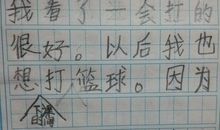 我看了一会打的
很好。以后我也
想打篮球。因为